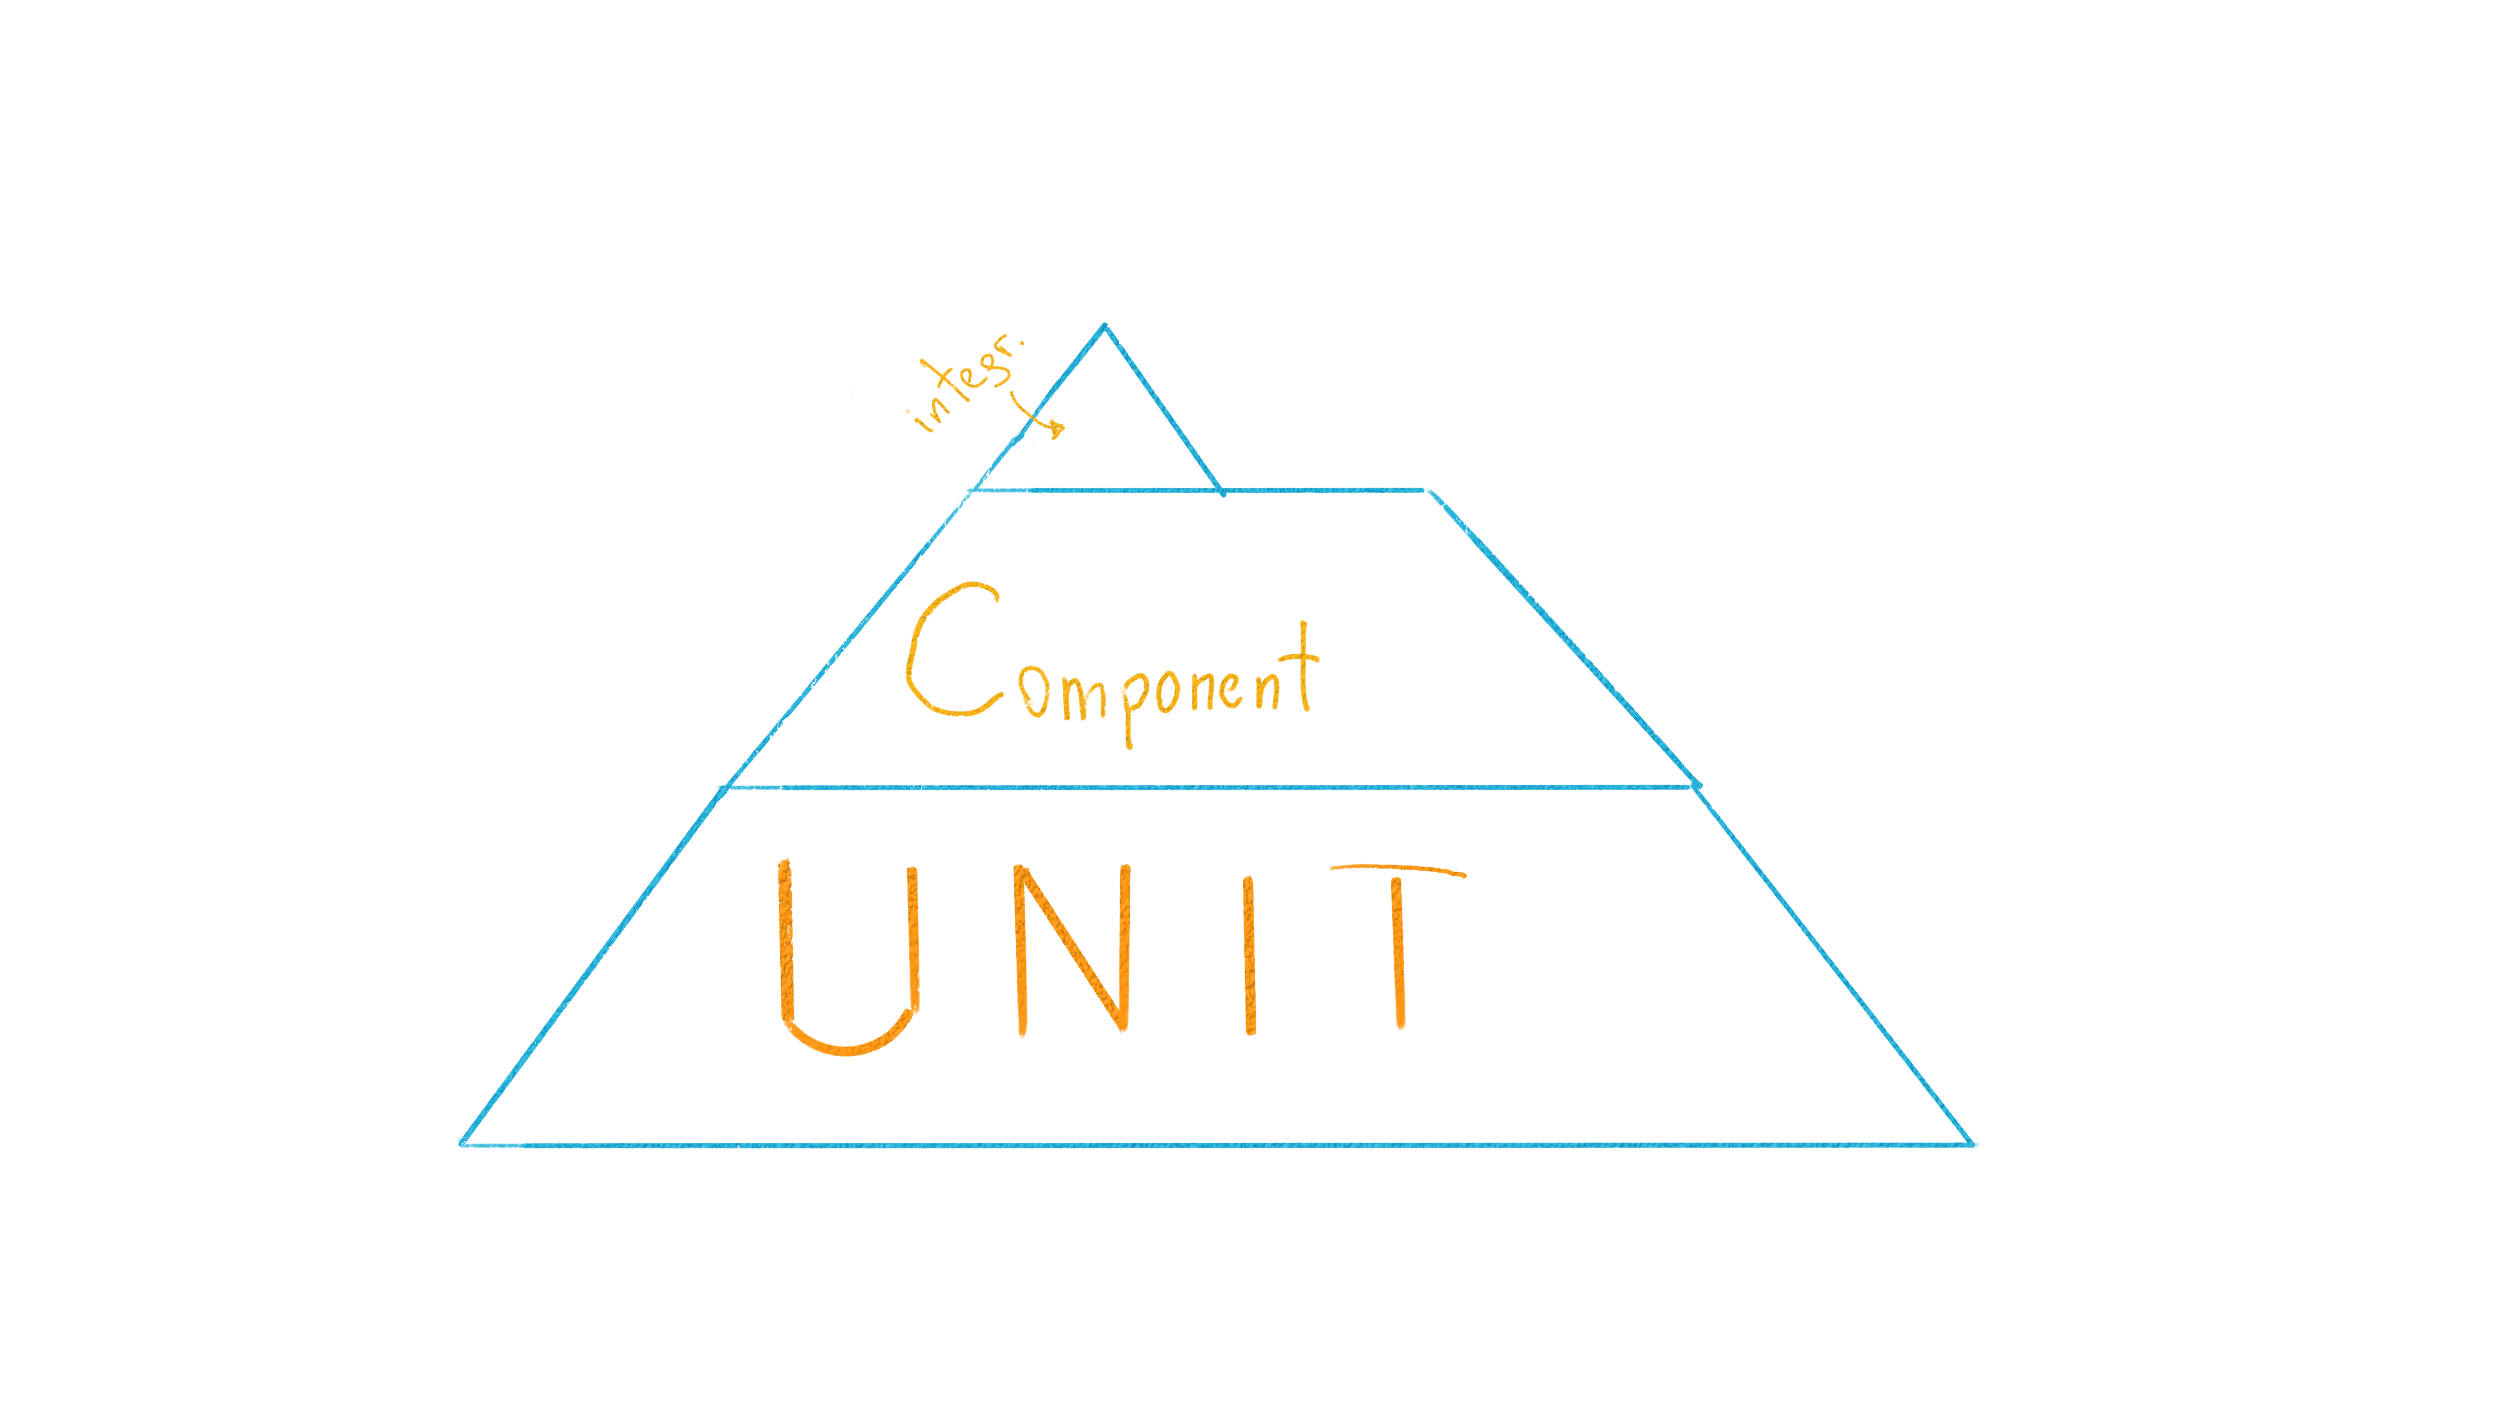 integr.
Component
UNIT